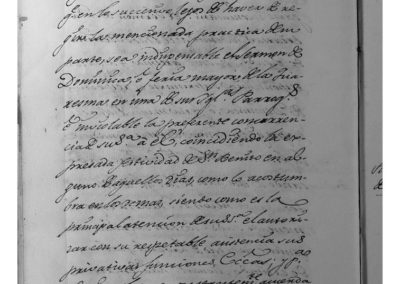 q.e en lo succesivo, lejos de haver de re-
gir la mencionada practica de su
parte, sea indispensable el sermon de
Dominica, ò feria mayor de la Qua-
resma en una de sus Ygl.s Parroq.s
è inviolable la preferente concurren-
cia de su S.a à el, coincidiendo la ex-
presada festividad de S.n Benito en al-
guno de aquellos dias, como lo acostum-
bra en los demas, siendo como es la
principal atencion de su S. el autori-
zar con su respetable asistencia sus
privativas funciones Ecc.as; y p.a